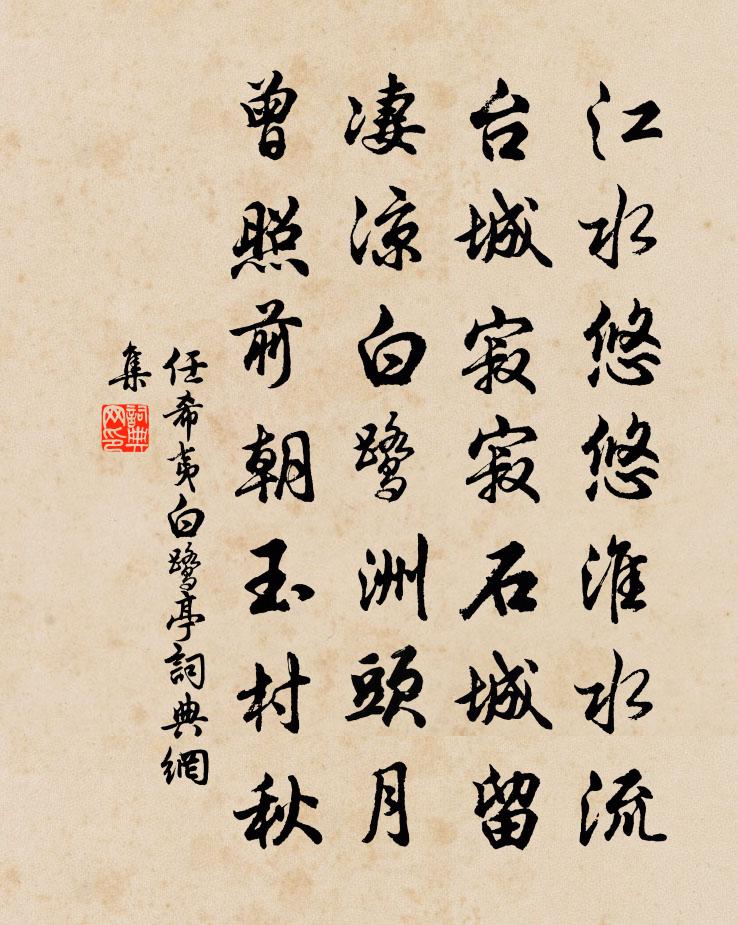 江水悠悠淮水流
台城寂寂石城留
凄凉白鹭洲頭月
曾照前朝玉村秋
任希夷白鹭亭詞典網
集
詞典
网印